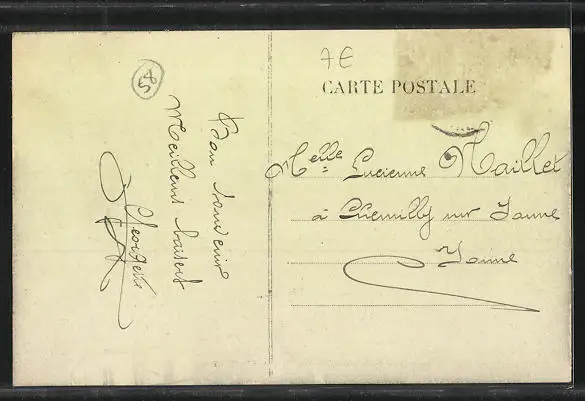 58
Bon Souvenir
Meilleurs baisers
7€
CARTE POSTALE
Melle Lucienne Maillet
à Chemilly sur Yonne
Yonne